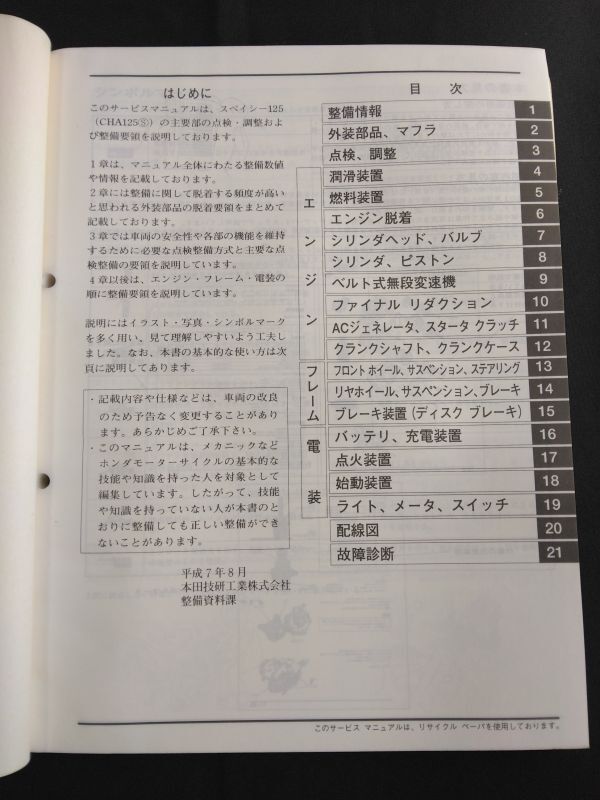 はじめに
このサービスマニュアルは、スペイシー125
（CHA125Ⓢ）の主要部の点検・調整およ
び整備要領を説明しております。
1章は、マニュアル全体にわたる整備数値
や情報を記載しております。
2章には整備に関して脱着する頻度が高い
と思われる外装部品の脱着要領をまとめて
記載しております。
3章では車両の安全性や各部の機能を維持
するために必要な点検整備方式と主要な点
検整備の要領を説明しています。
4章以後は、エンジン・フレーム・電装の
順に整備要領を説明しています。
説明にはイラスト・写真・シンボルマーク
を多く用い、見て理解しやすいよう工夫し
ました。なお、本書の基本的な使い方は次
頁に説明してあります。
・記載内容や仕様などは、車両の改良
のため予告なく変更することがあり
ます。あらかじめご了承下さい。
・このマニュアルは、メカニックなど
ホンダモーターサイクルの基本的な
技能や知識を持った人を対象として
編集しています。したがって、技能
や知識を持っていない人が本書のと
おりに整備しても正しい整備ができ
ないことがあります。
平成7年8月
本田技研工業株式会社
整備資料課
目 次
整備情報 1
外装部品、マフラ 2
点検、調整 3
エンジン
潤滑装置 4
燃料装置 5
エンジン脱着 6
シリンダヘッド、バルブ 7
シリンダ、ピストン 8
ベルト式無段変速機 9
ファイナル リダクション 10
ACジェネレータ、スタータ クラッチ 11
クランクシャフト、クランクケース 12
フレーム
フロント ホイール、サスペンション、ステアリング 13
リヤホイール、サスペンション、ブレーキ 14
ブレーキ装置（ディスク ブレーキ） 15
電装
バッテリ、充電装置 16
点火装置 17
始動装置 18
ライト、メータ、スイッチ 19
配線図 20
故障診断 21
このサービス マニュアルは、リサイクル ペーパを使用しております。